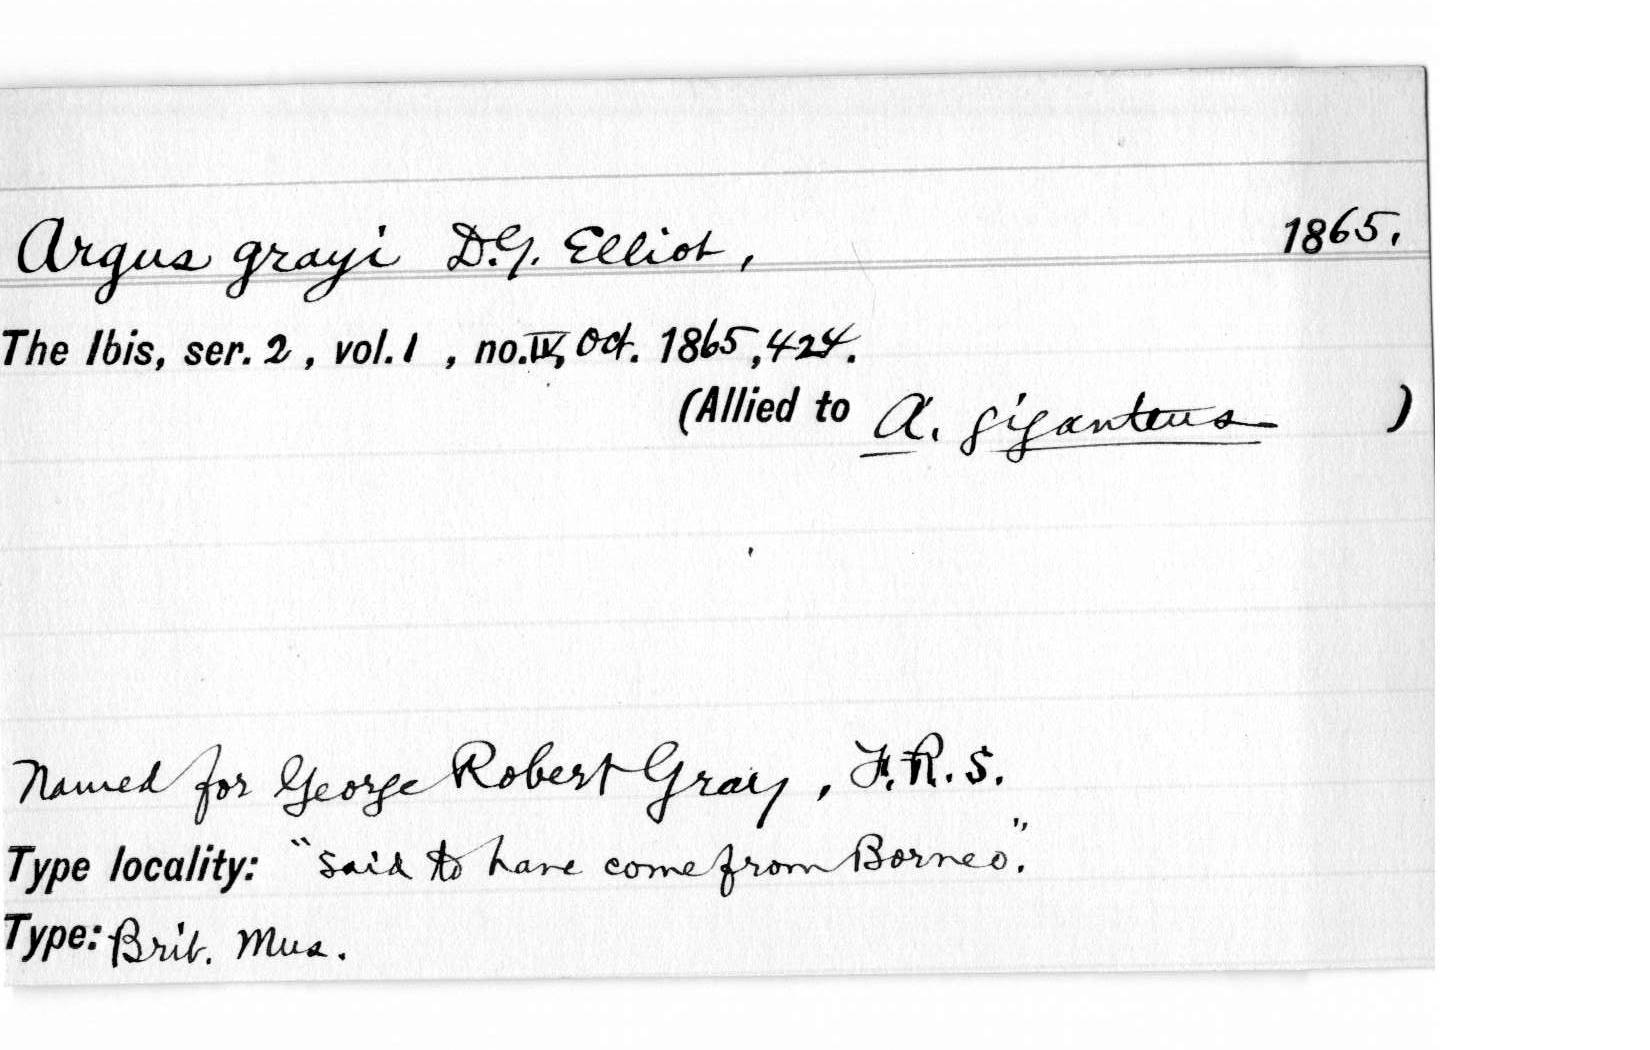 Argus grayi D.G. Elliot, 1865.
The Ibis, ser. 2, vol. 1, no. IV, Oct. 1865, 424.
(Allied to A. giganteus )
Named for George Robert Gray, F.R.S.
Type locality: "Said to have come from Borneo."
Type: Brit. Mus.